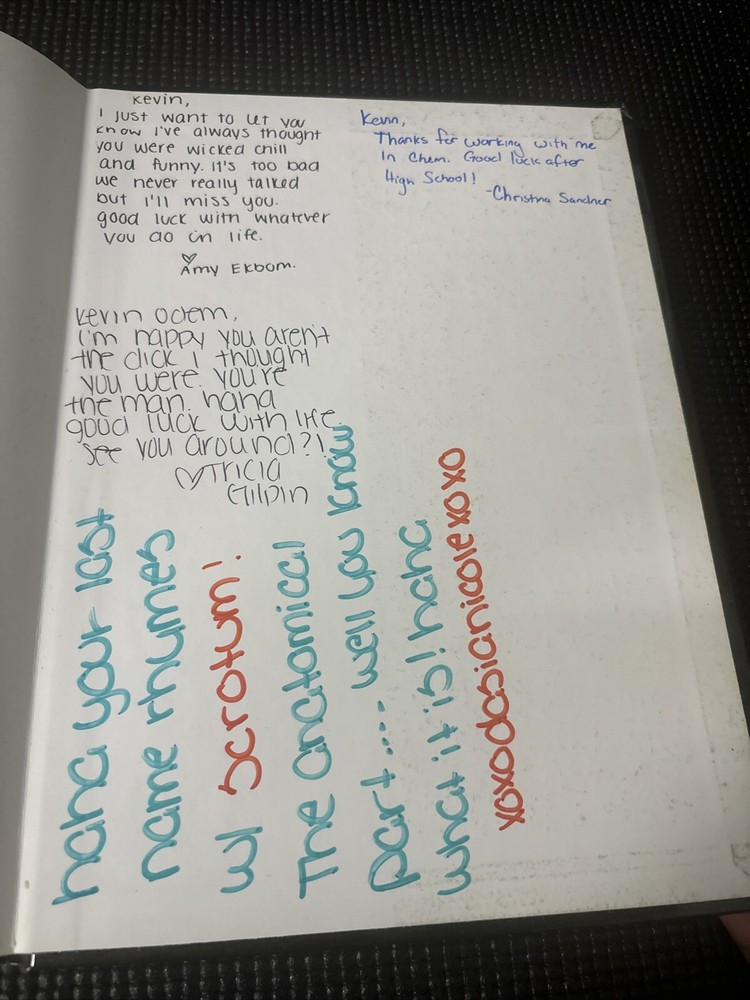 Kevin,
I just want to let you
know I've always thought
you were wicked chill
and funny. It's too bad
we never really talked
but I'll miss you.
good luck with whatever
you do in life.
♡
Amy Ekbom.
Kevin,
Thanks for working with me
In Chem. Good luck after
High School!
-Christina Sandner
Kevin Odem,
I'm happy you aren't
the dick I thought
you were. you're
the man. haha
good luck with life.
See you around?!
♡Tricia
Gilpin
haha your last
name rhymes
w/ scrotum!
The anatomical
part.... well you know
what it is! haha
xoxodasianicolexoxo